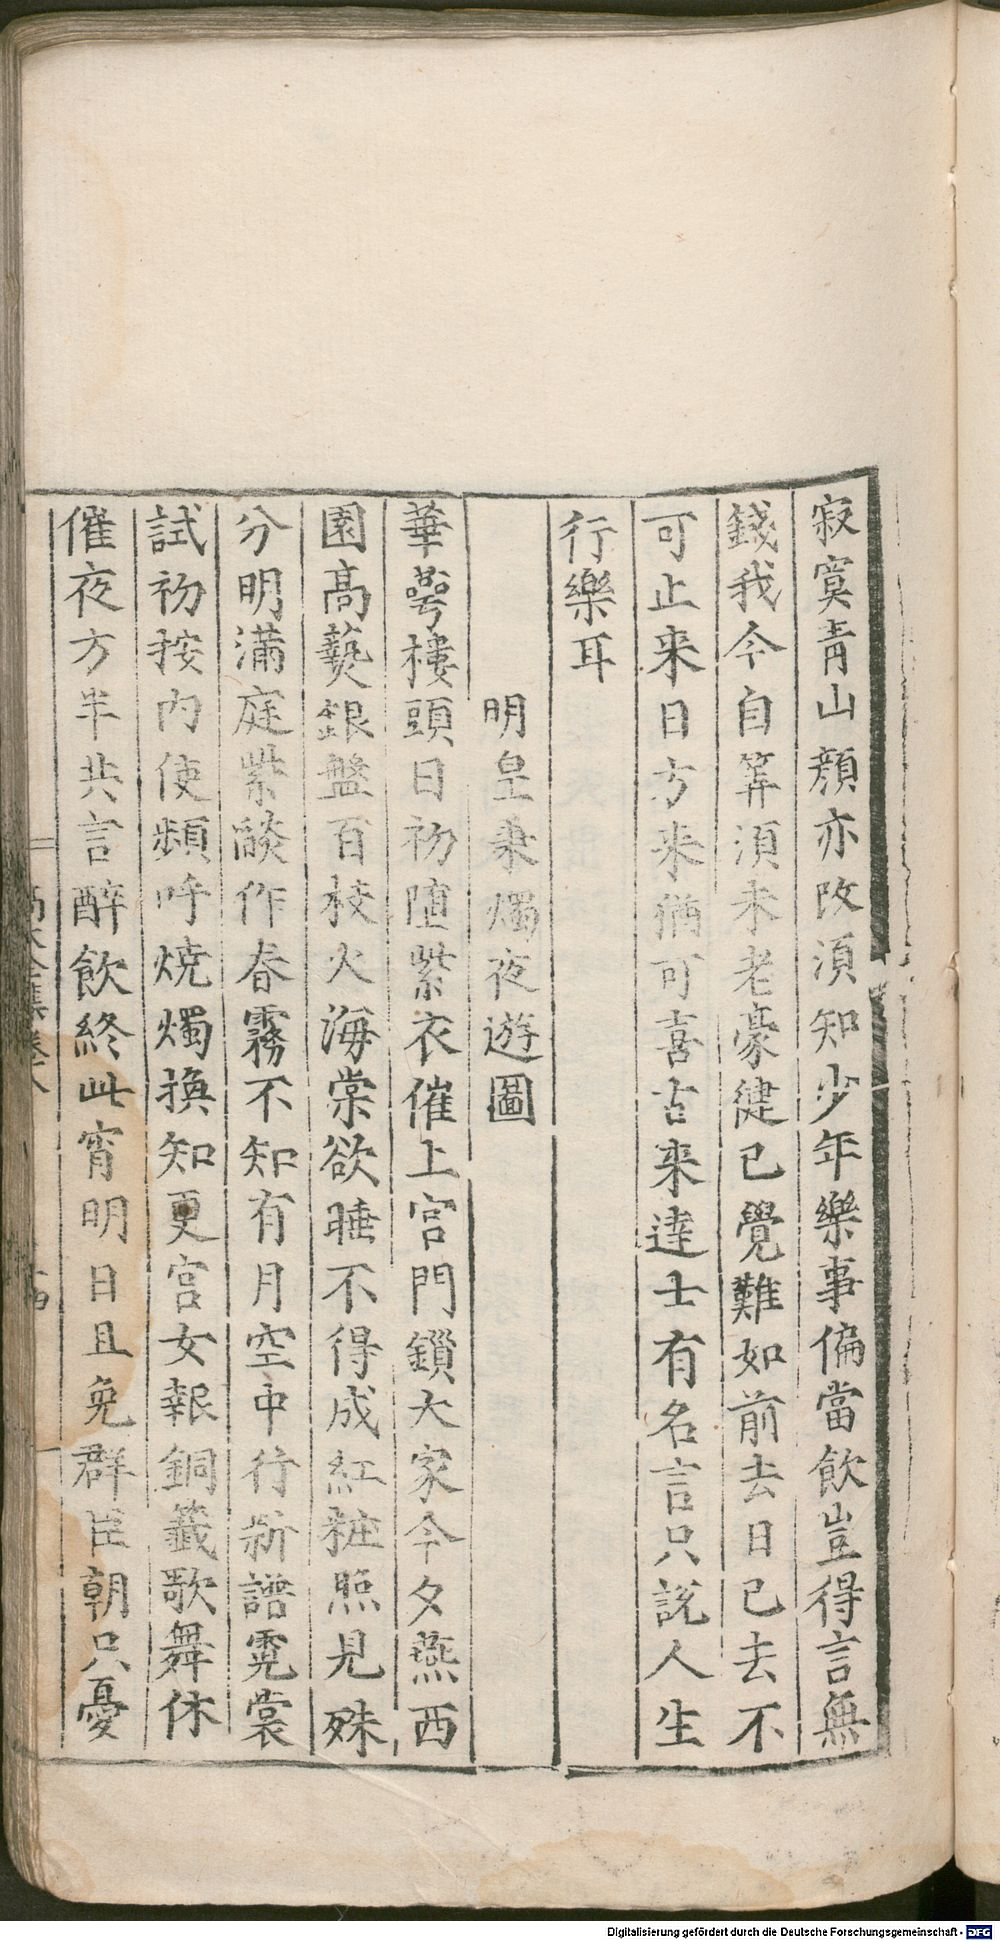 寂寞青山顔亦改須知少年樂事偏當飲豈得言無
錢我今自筭須未老豪健已覺難如前去日已去不
可止来日方来猶可喜古来達士有名言只説人生
行樂耳
明皇秉燭夜遊圖
華萼樓頭日初墮紫衣催上宮門鎖大家今夕燕西
園高爇銀盤百枝火海棠欲睡不得成紅粧照見殊
分明滿庭紫燄作春霧不知有月空中行新譜霓裳
試初按內使頻呼燒燭換知更宮女報銅籤歌舞休
催夜方半共言醉飲終此宵明日且免群臣朝只憂
Digitalisierung gefördert durch die Deutsche Forschungsgemeinschaft - DFG